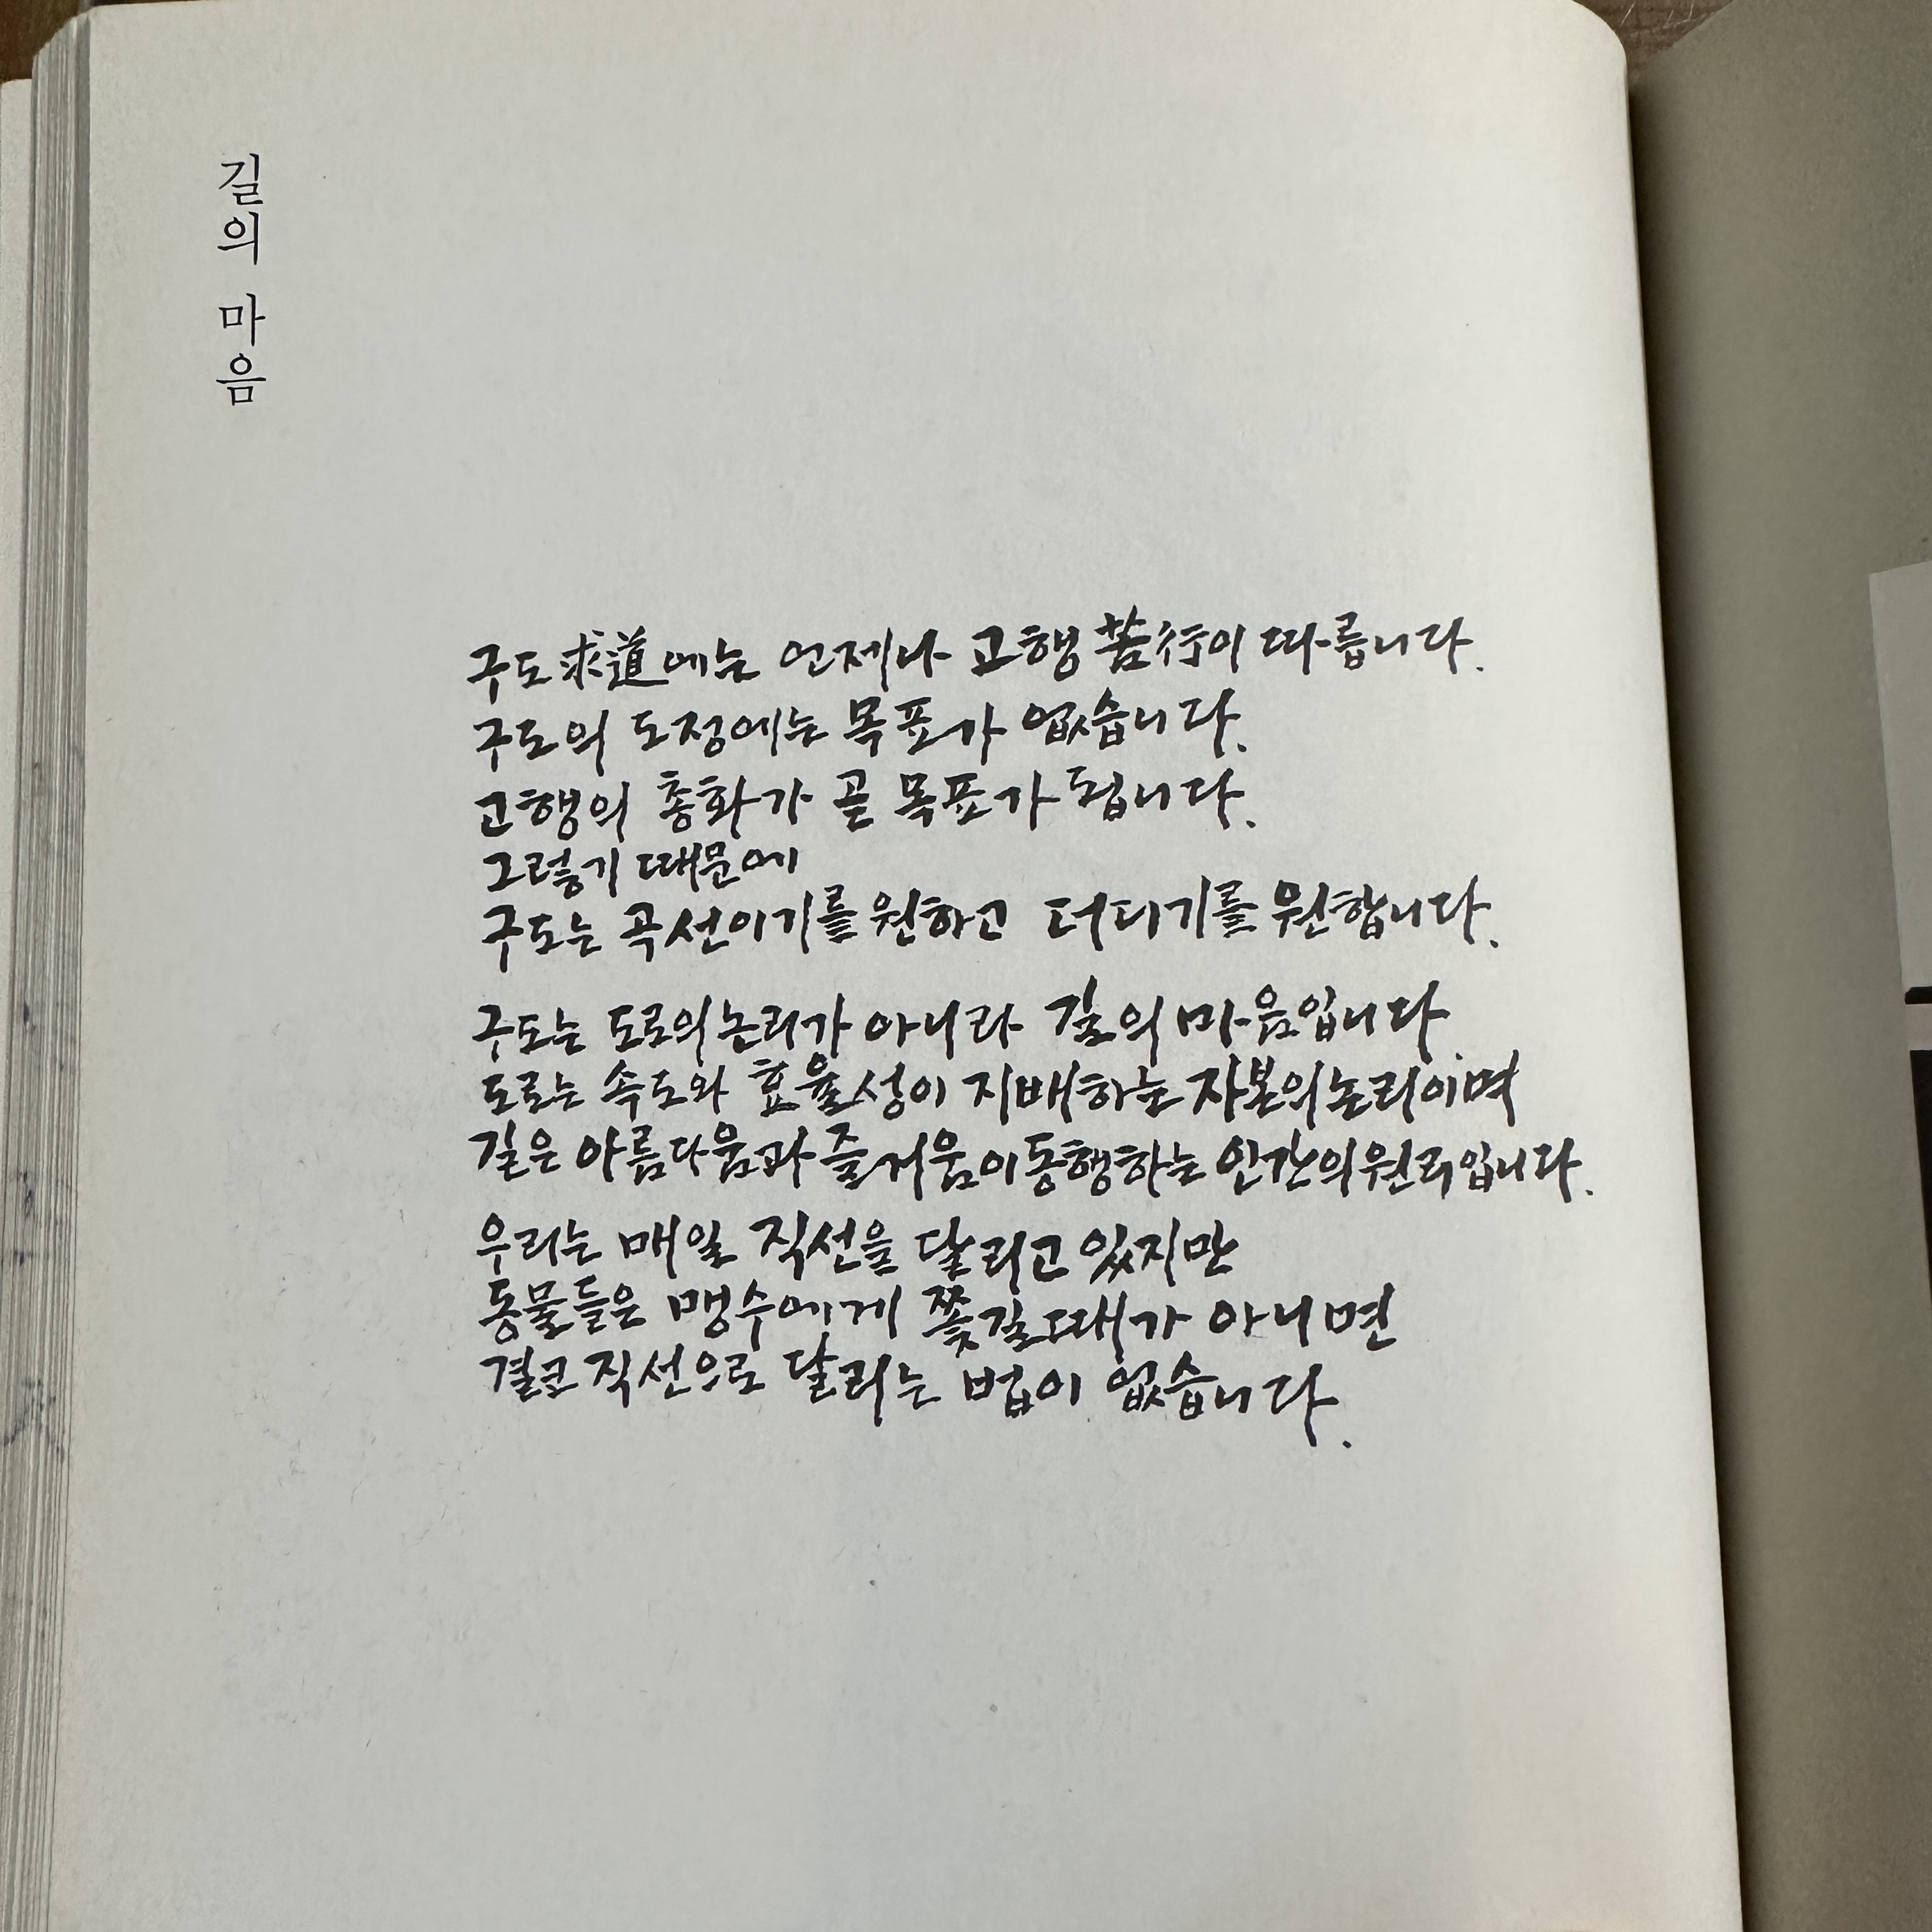 길의 마음
구도求道에는 언제나 고행苦行이 따릅니다.
구도의 도정에는 목표가 없습니다.
고행의 총화가 곧 목표가 됩니다.
그렇기 때문에
구도는 곡선이기를 원하고 더디기를 원합니다.
구도는 도로의 논리가 아니라 길의 마음입니다.
도로는 속도와 효율성이 지배하는 자본의 논리이며
길은 아름다움과 즐거움이 동행하는 인간의 원리입니다.
우리는 매일 직선을 달리고 있지만
동물들은 맹수에게 쫓길 때가 아니면
결코 직선으로 달리는 법이 없습니다.